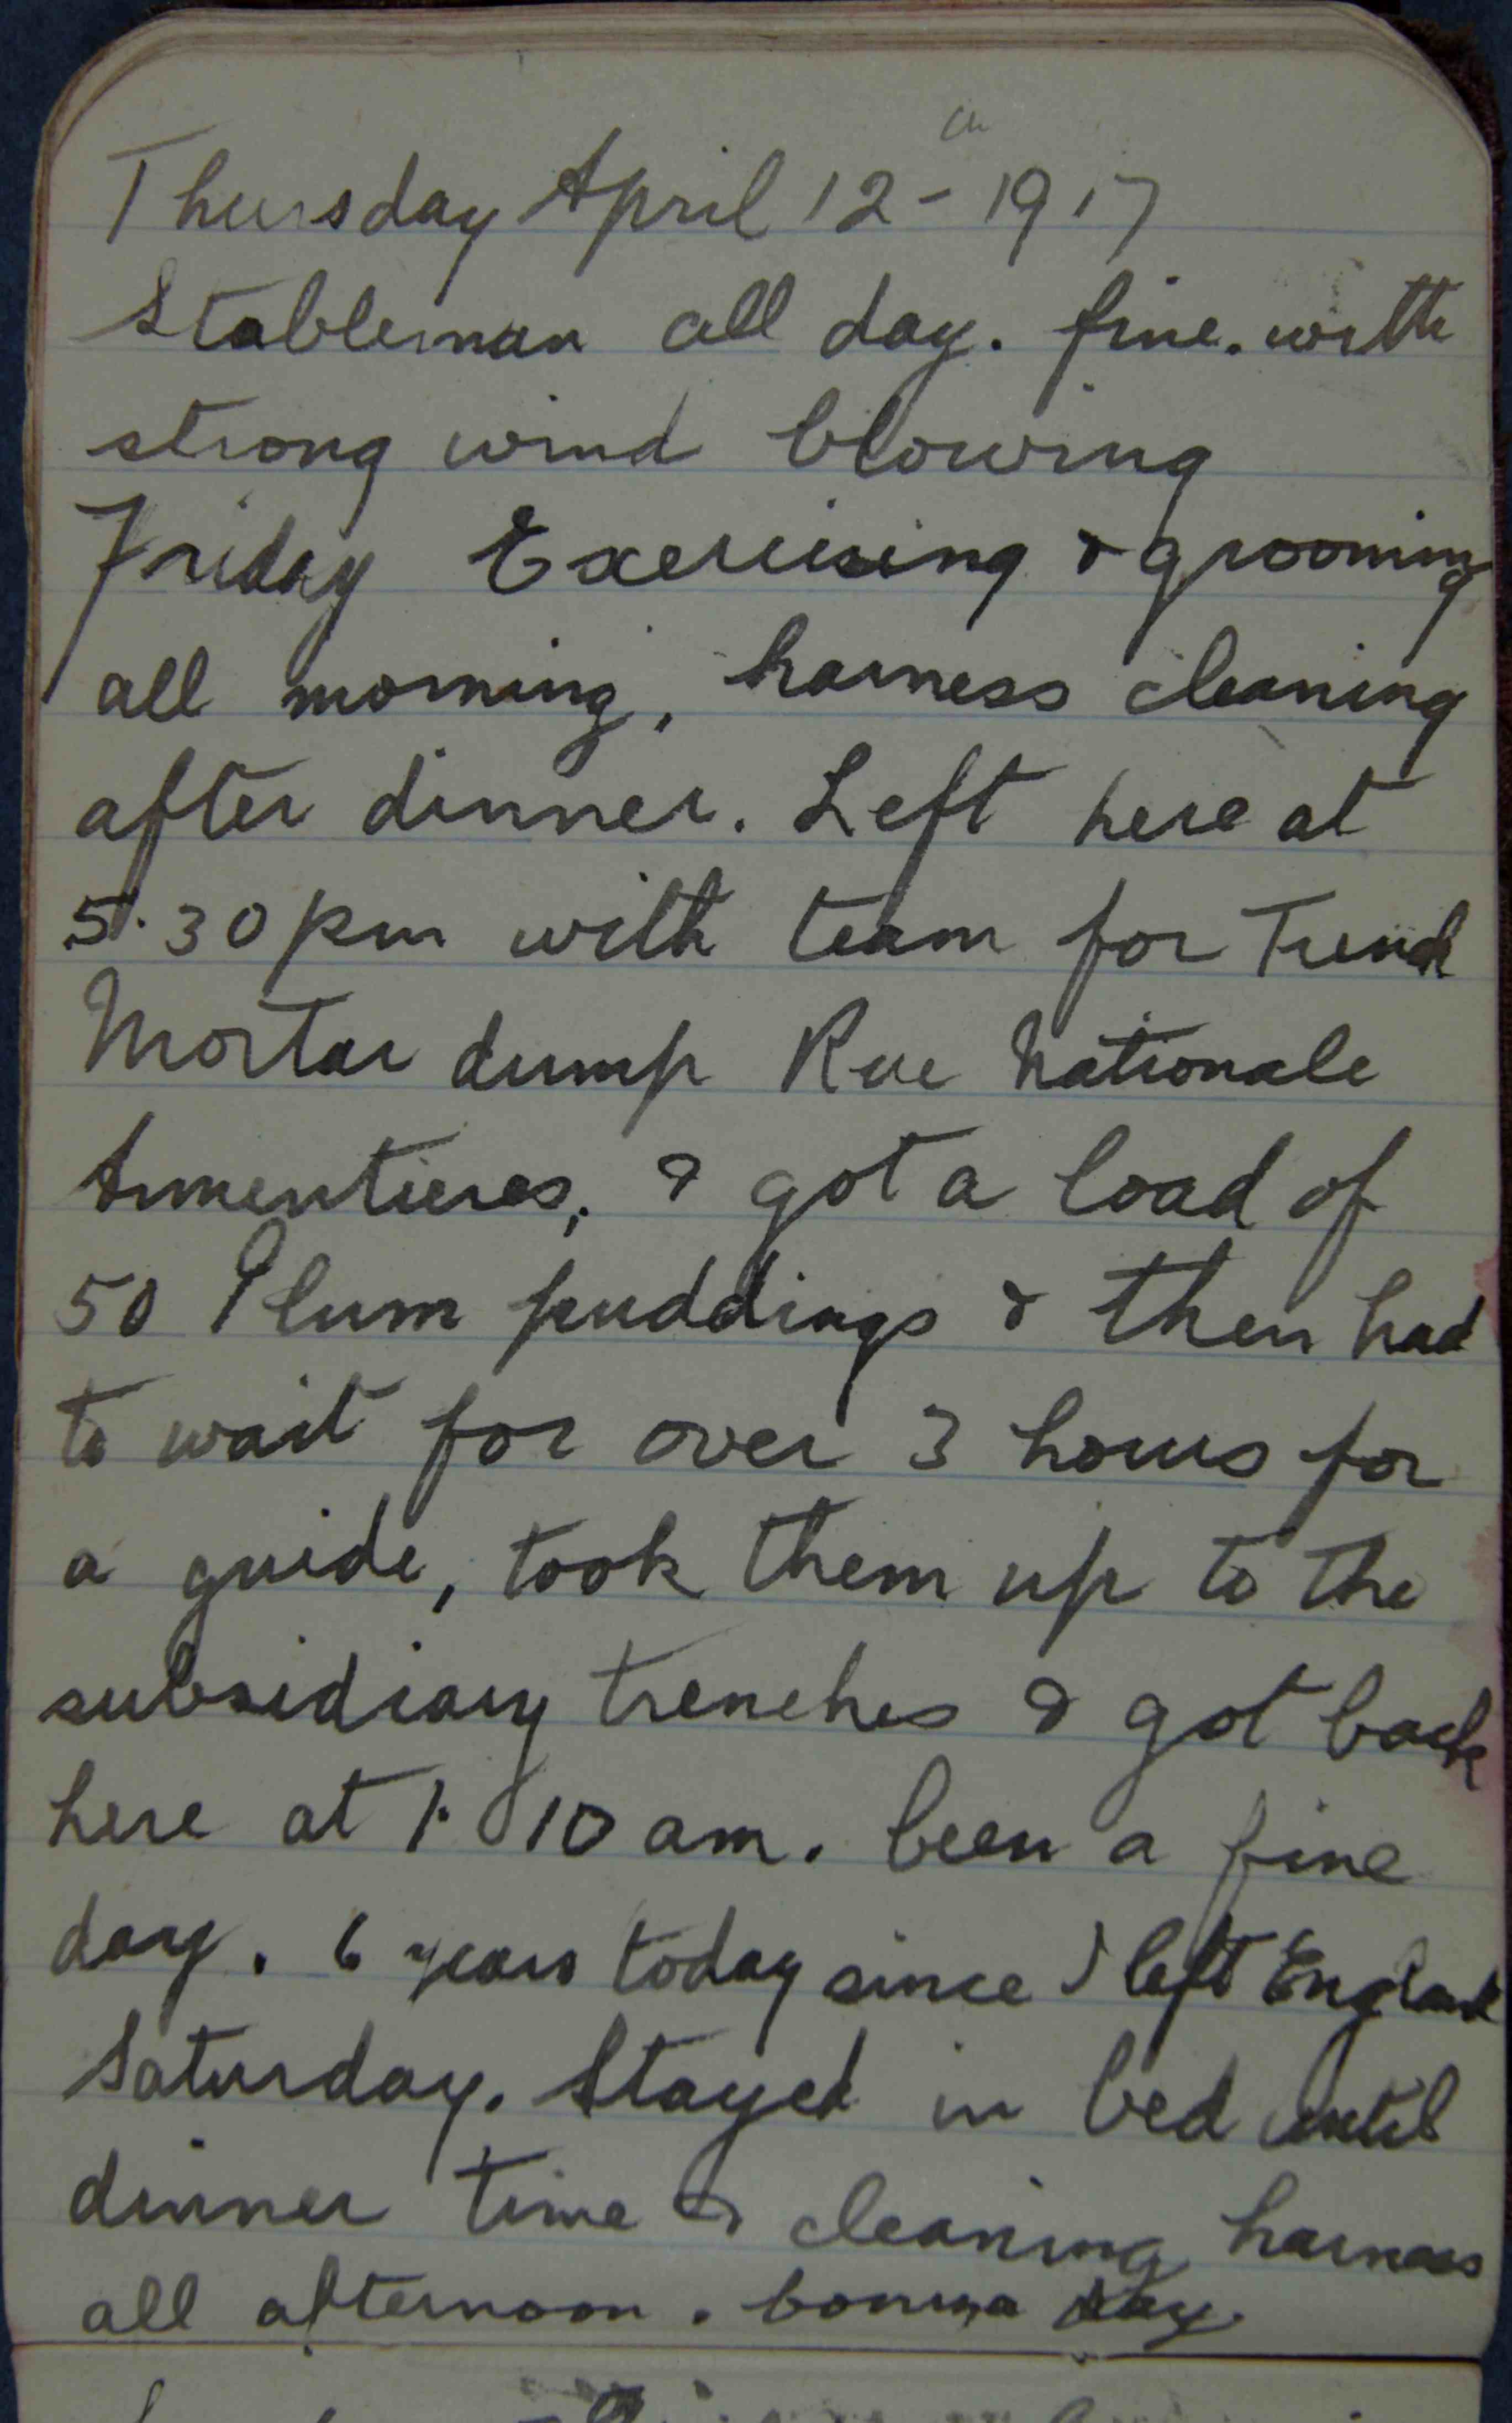 Thursday April 12th 1917
Stableman all day. fine. with
strong wind blowing
Friday Exercising & grooming
all morning, harness cleaning
after dinner. Left here at
5.30 pm with team for Trench
Mortar dump Rue Nationale
Armentieres, & got a load of
50 Plum puddings & then had
to wait for over 3 hours for
a guide, took them up to the
subsidiary trenches & got back
here at 1.10 am. been a fine
day. 6 years today since I left England
Saturday. Stayed in bed until
dinner time & cleaning harness
all afternoon. bonza day.